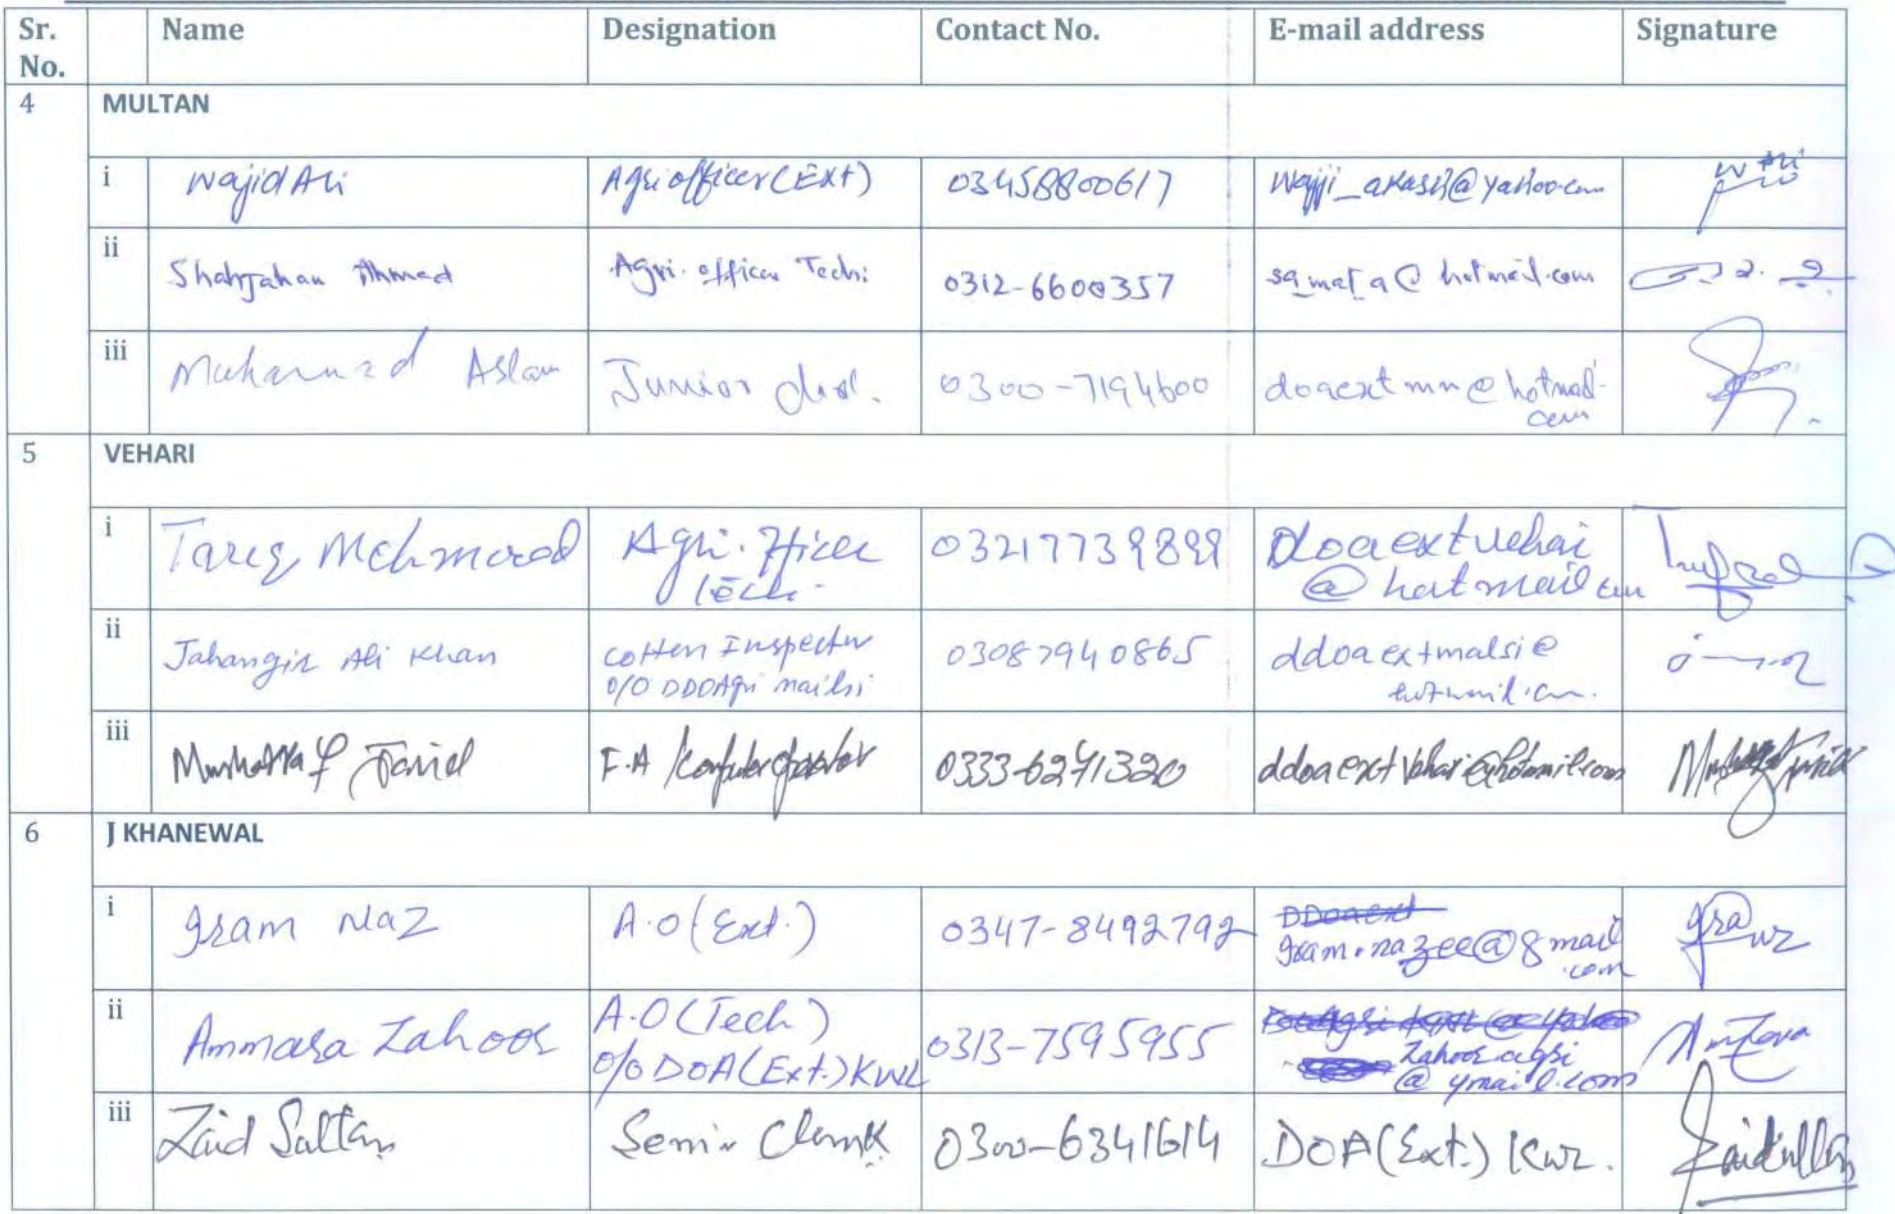 Sr. No. Name Designation Contact No. E-mail address Signature
4 MULTAN
i Wajid Ali Agri officer (Ext) 03458800617 wajji_akash@yahoo.com
ii Shahjahan Ahmed Agri. officer Tech: 0312-6600357 @hotmail.com
iii Muhammad Aslam Junior clerk. 0300-7194600 doaextmn@hotmail.com
5 VEHARI
i Tariq Mehmood Agri. officer Tech. 03217739899 doaextvehai
@hotmail.com
ii Jahangir Ali Khan Cotton Inspector 03087940865 ddoaextmalsi@
O/O DDOAgri mailsi hotmail.com.
iii Farid F.A / Computer operator 0333-6241320 ddoaextvehari@hotmail.com
6 J KHANEWAL
i Iram Naz A.O (Ext.) 0347-8492792 DDoaext
iram.nazee@gmail
.com
ii Ammara Zahoor A.O (Tech) 0313-7595955
O/O DOA (Ext.) KWL Zahoor.agri
@ymail.com
iii Zaid Sultan Senior Clerk 0300-6341614 DOA (Ext.) KWL.